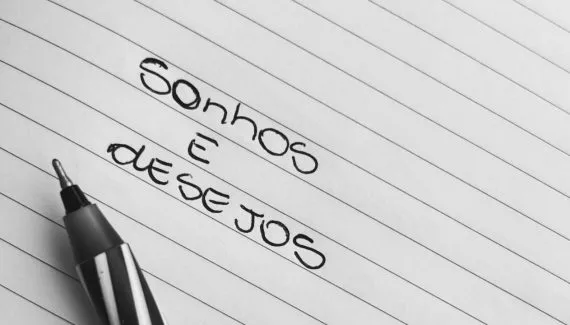 SOnhOS
E
dESEJOS